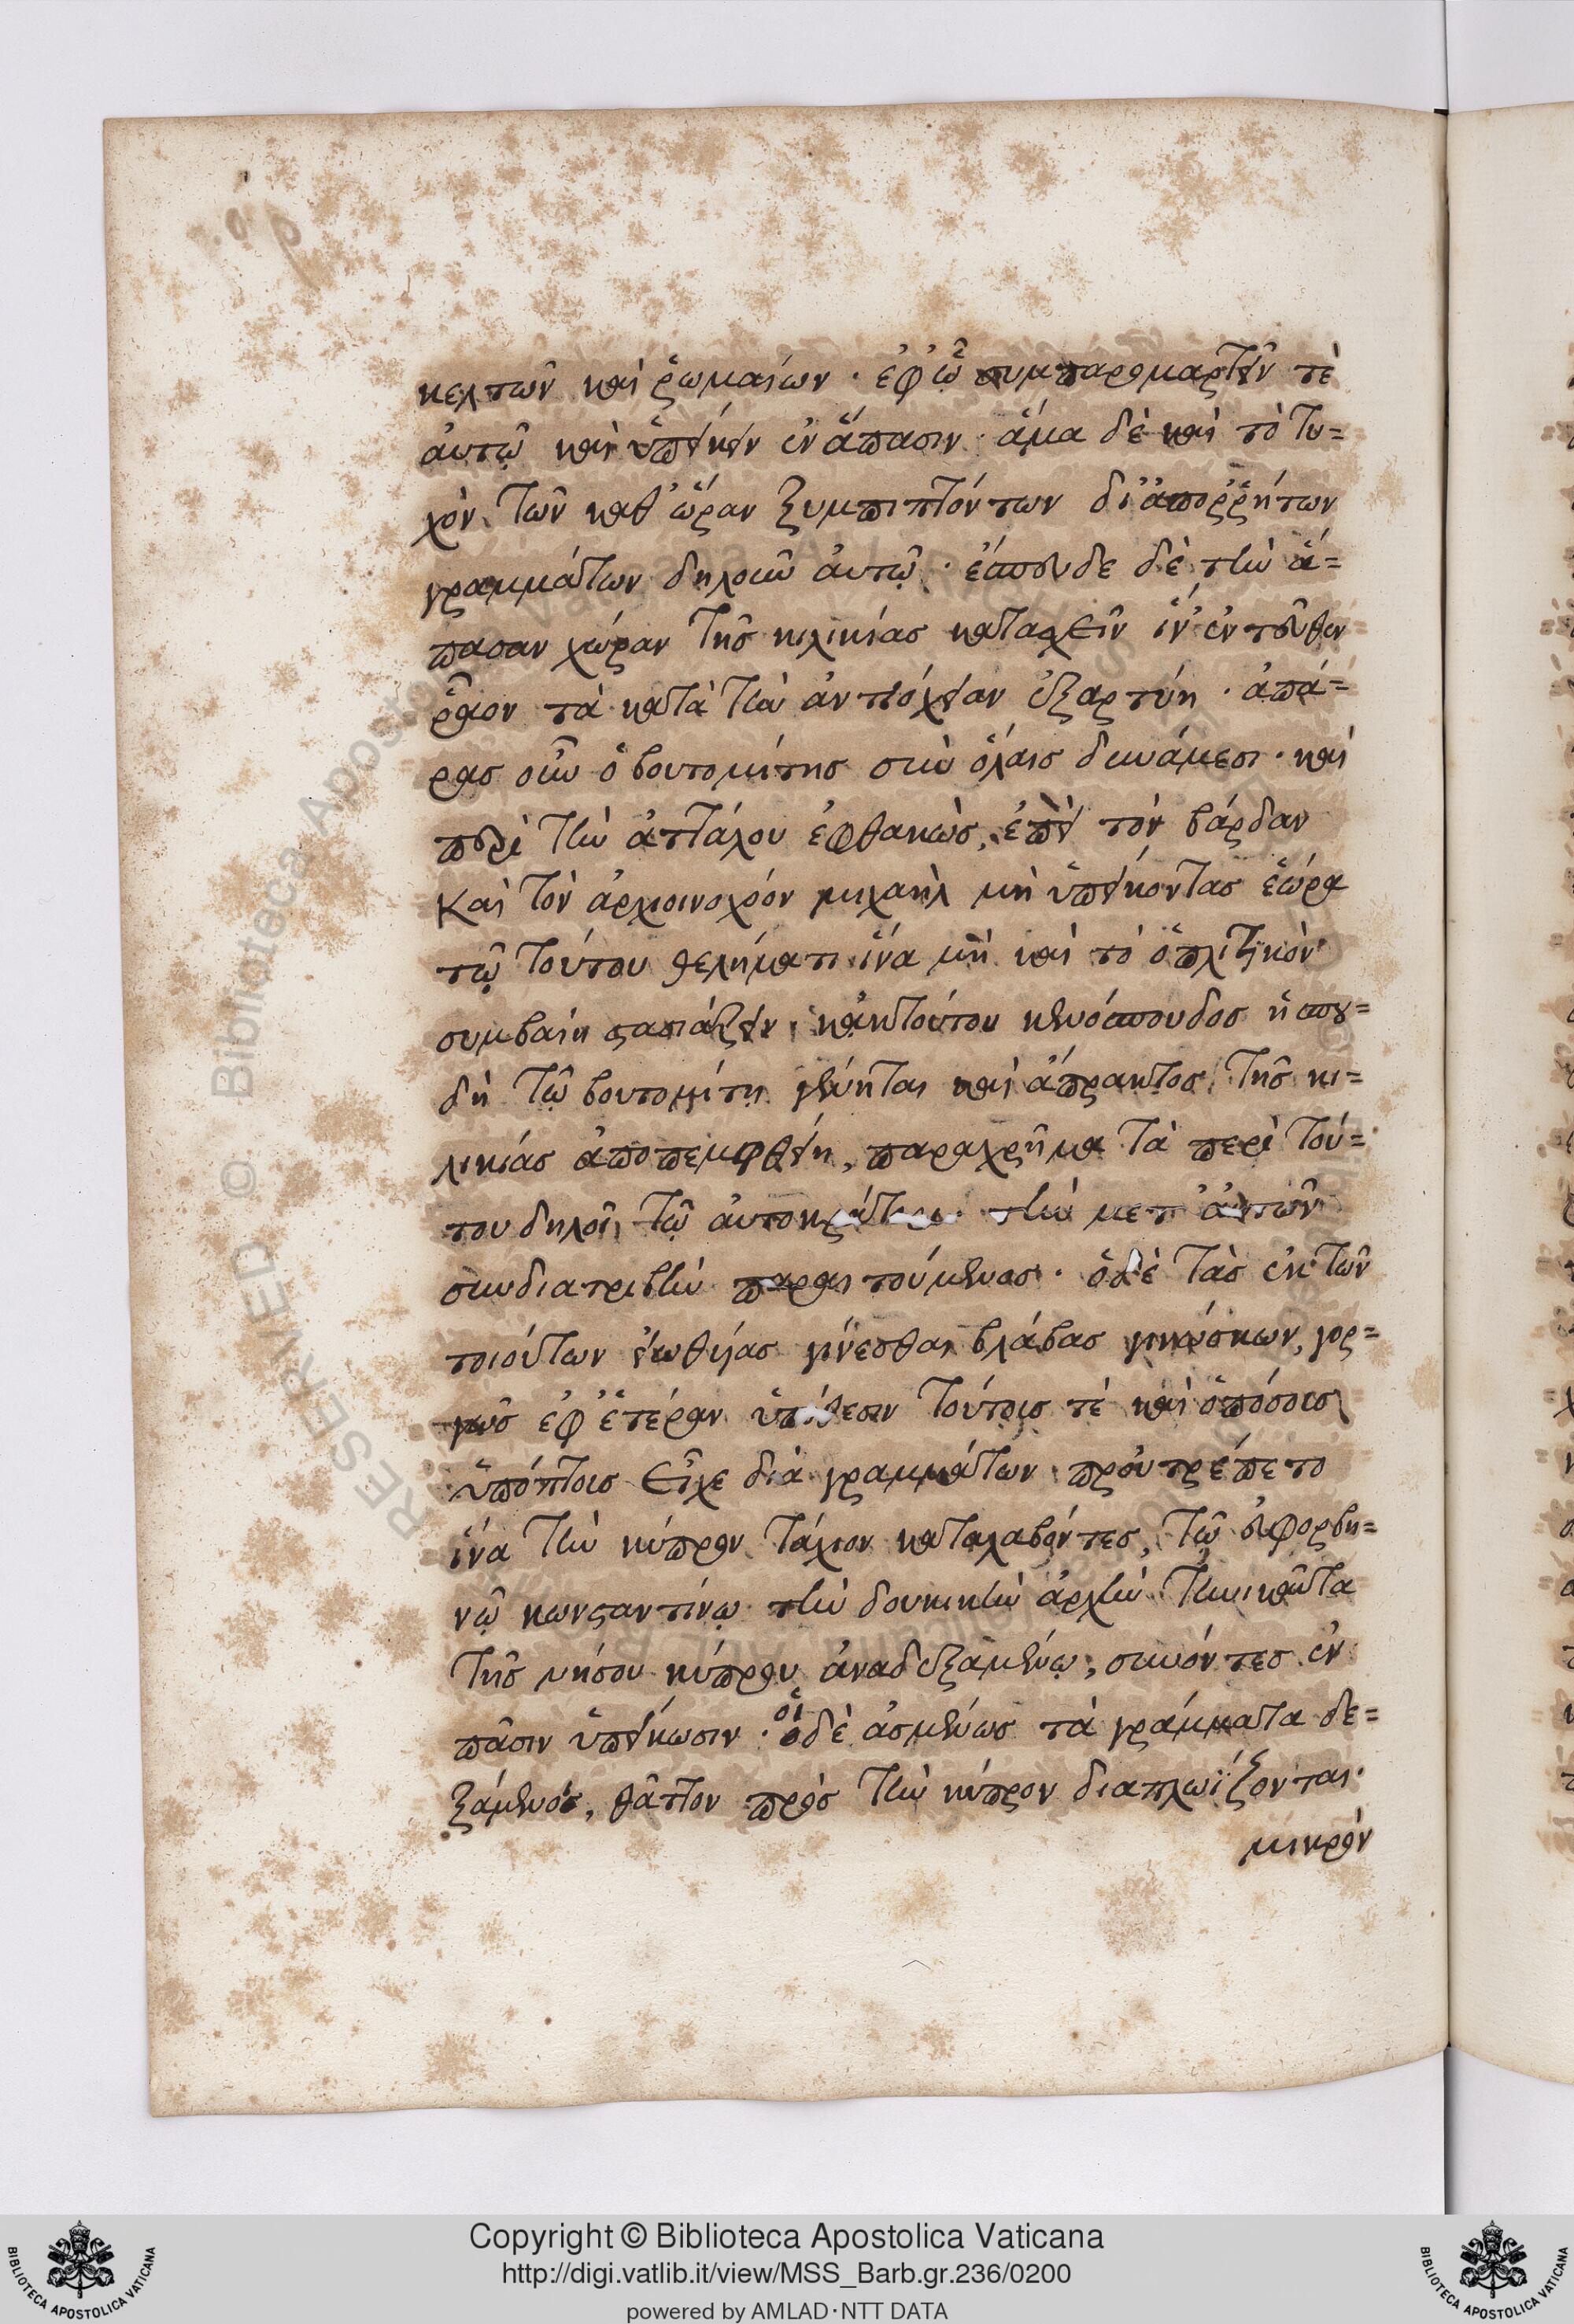 κελτῶν καὶ ῥωμαίων· ἐφ' ᾧ συμπαρομαρτεῖν τὲ
αὐτῷ καὶ ὑπείκειν ἐν ἅπασιν· ἅμα δὲ καὶ τὸ τυ=
χὸν τῶν καθ' ὥραν ξυμπιπτόντων δι' ἀποῤῥήτων
γραμμάτων δηλοῦν αὐτῷ· ἔσπουδε δὲ τὴν ἅ=
πασαν χώραν τῆς κιλικίας κατασχεῖν ἵν' ἐντεῦθεν
ῥᾷον τὰ κατὰ τὴν ἀντιόχειαν ἐξαρτύῃ· ἀπά=
ρας οὖν ὁ βουτομίτης σὺν ὅλαις δυνάμεσι· καὶ
περὶ τὴν ἀττάλου ἐφθακὼς, ἐπεὶ τὸν βάρδαν
Καὶ τὸν ἀρχιοινοχόον μιχαὴλ μὴ ὑπείκοντας ἑώρα
τῷ τούτου θελήματι ἵνα μὴ καὶ τὸ ὁπλιτικὸν
συμβαίη στασιάζειν, κἀκ τούτου κενόσπουδος ἡ σπου=
δὴ τῷ βουτομίτῃ γένηται καὶ ἄπρακτος τῆς κι=
λικίας ἀποπεμφθείη, παραχρῆμα τὰ περὶ τού=
του δηλοῖ τῷ αὐτοκράτορι τὴν μετ' αὐτῶν
συνδιατριβὴν παραιτούμενος· ὁ δὲ τὰς ἐκ τῶν
τοιούτων εἰωθυίας γίνεσθαι βλάβας γινώσκων, γορ=
γῶς ἐφ' ἑτέραν ὑπόθεσιν τούτοις τὲ καὶ ὁπόσοις
ὑπόπτοις εἶχε διὰ γραμμάτων προὐτρέπετο
ἵνα τὴν κύπρον τάχιον καταλαβόντες, τῷ εὐφορβη=
νῷ κωνσταντίνῳ τὴν δουκικὴν ἀρχὴν τηνικαῦτα
τῆς νήσου κύπρου ἀναδεξαμένῳ, συνόντες ἐν
πᾶσιν ὑπείκωσιν· οἱ ὁ δὲ ἀσμένως τὰ γράμματα δε=
ξάμενος, θᾶττον πρὸς τὴν κύπρον διαπλωΐζονται·
μικρὸν
Copyright © Biblioteca Apostolica Vaticana
http://digi.vatlib.it/view/MSS_Barb.gr.236/0200
powered by AMLAD·NTT DATA
BIBLIOTECA APOSTOLICA VATICANA
BIBLIOTECA APOSTOLICA VATICANA